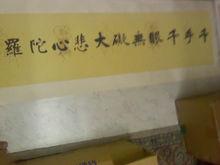 千手千眼無礙大悲心陀羅